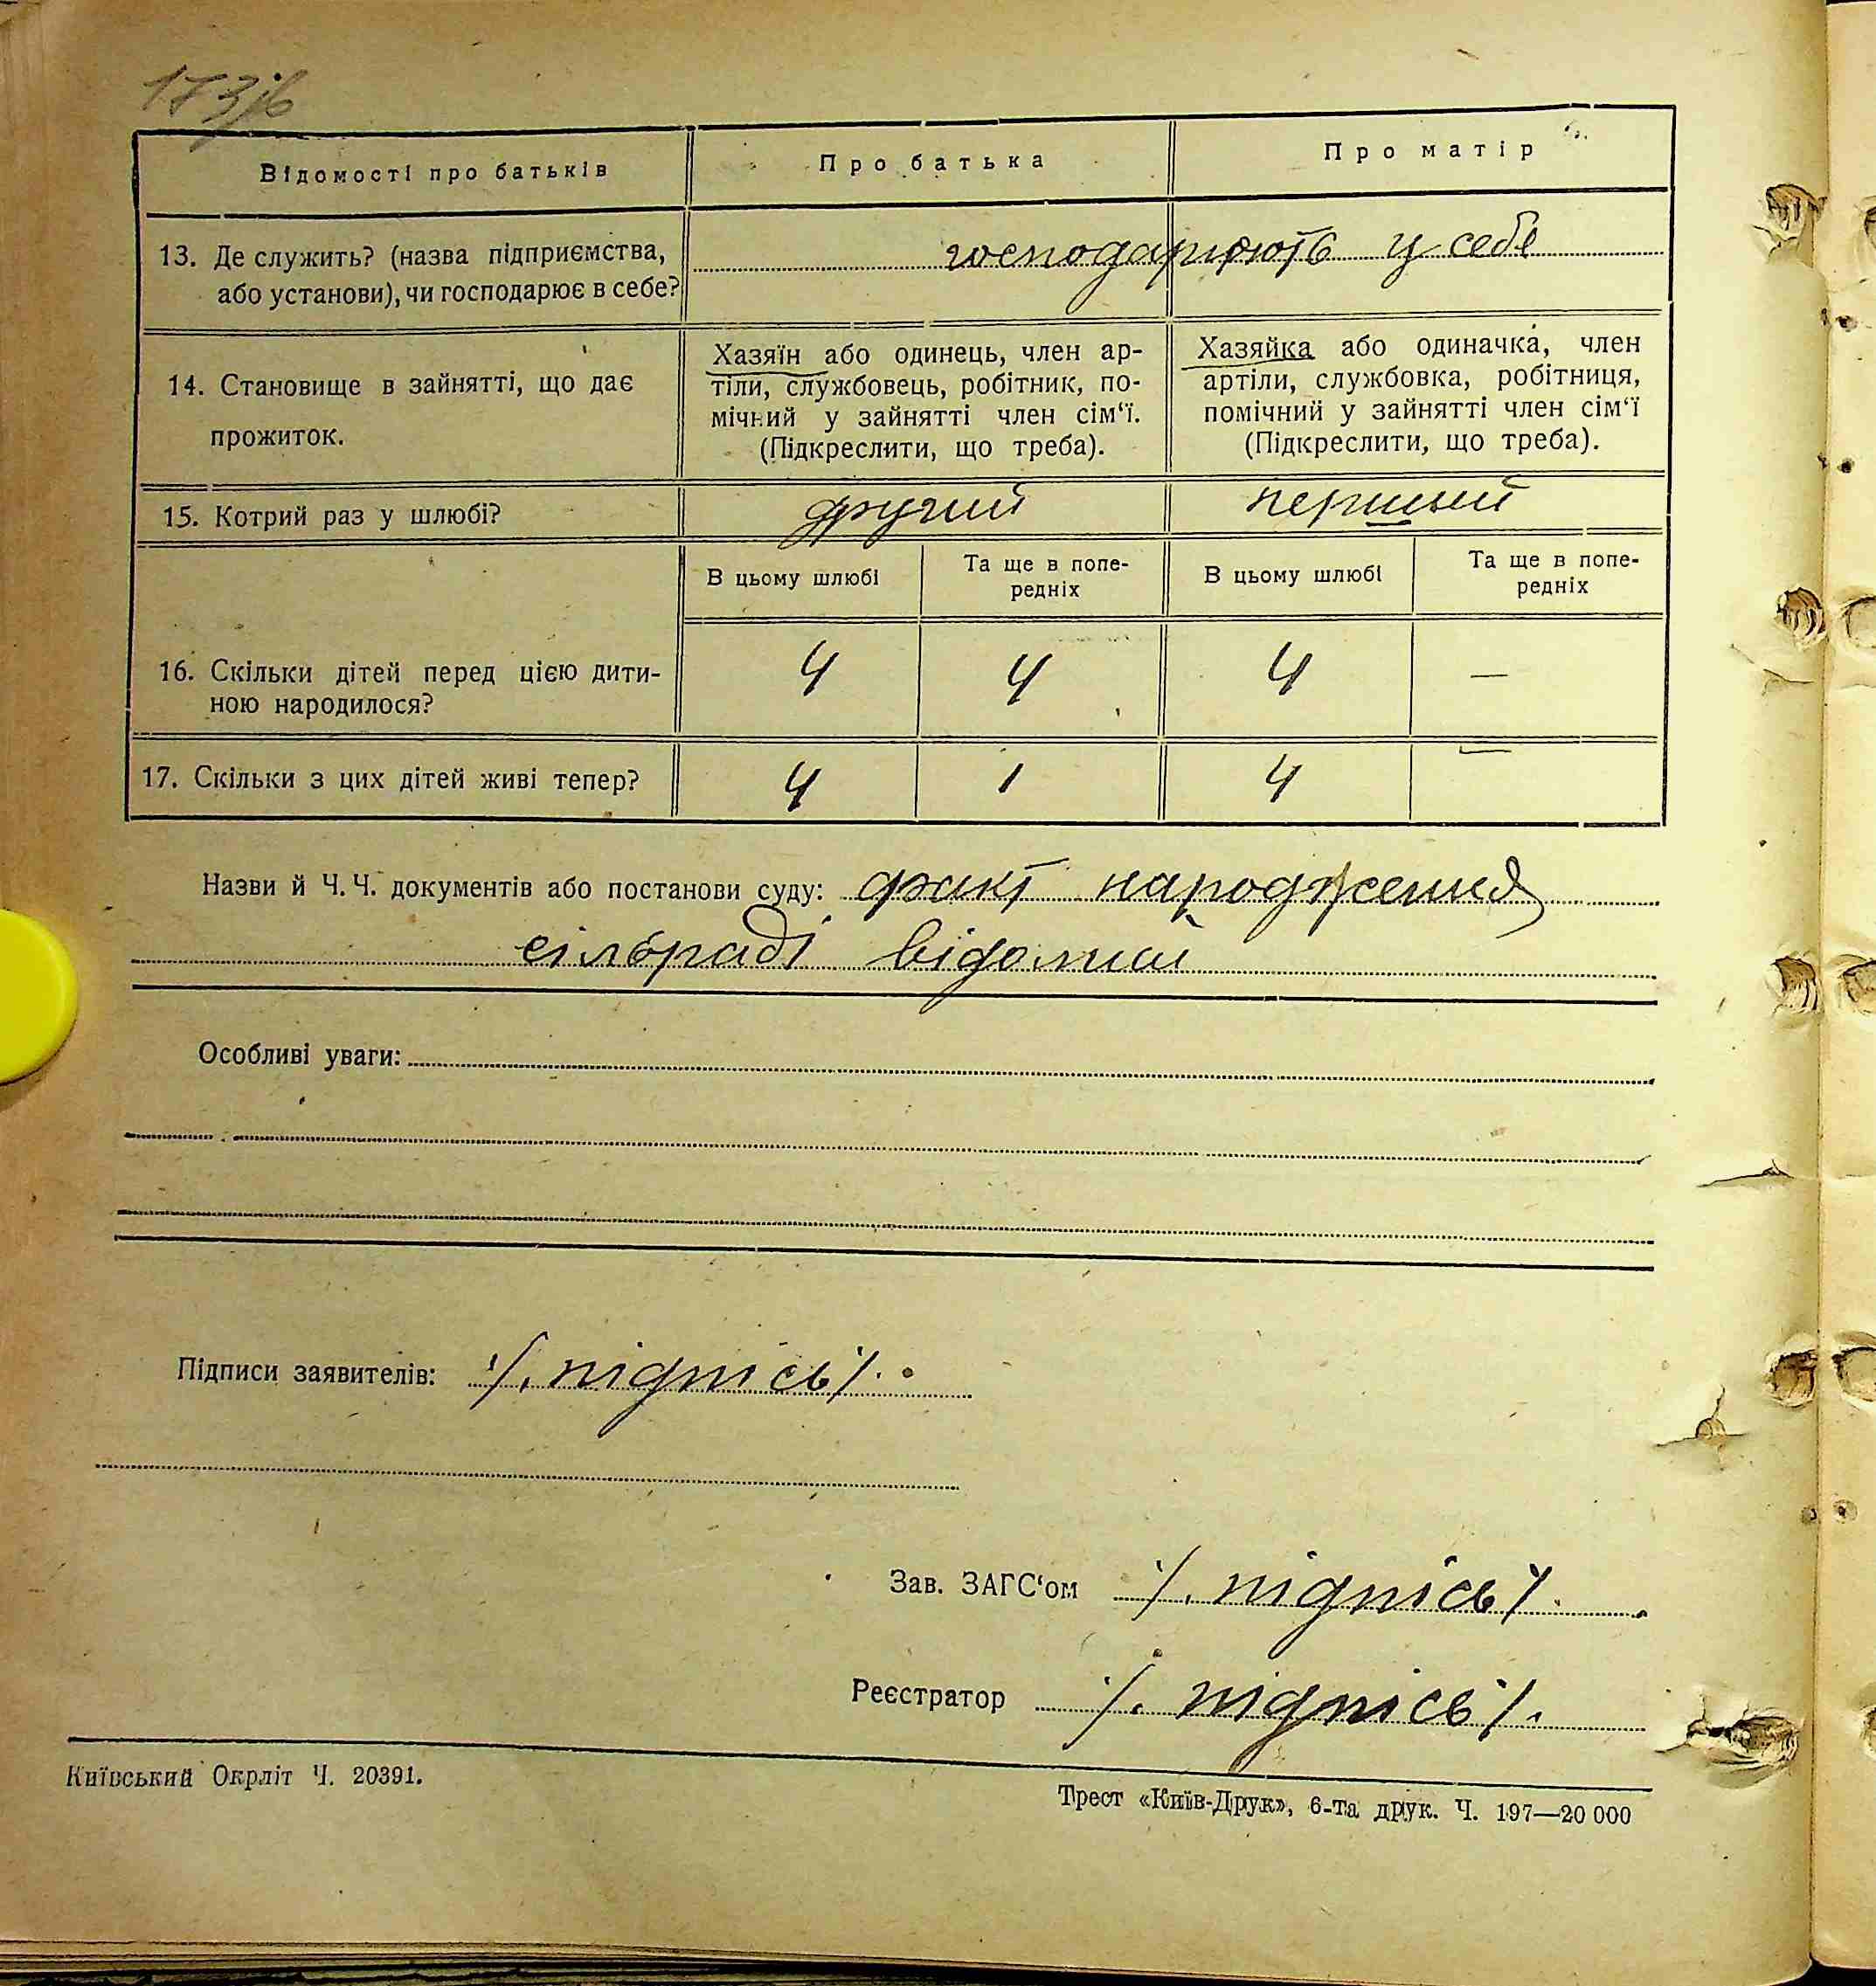 173зв
Відомості про батьків
Про батька
Про матір
13. Де служить? (назва підприємства,
або установи), чи господарює в себе?
господарюють у себе
14. Становище в зайнятті, що дає
прожиток.
Хазяїн або одинець, член ар-
тіли, службовець, робітник, по-
мічний у зайнятті член сім‘ї.
(Підкреслити, що треба).
Хазяйка або одиначка, член
артіли, службовка, робітниця,
помічний у зайнятті член сім‘ї
(Підкреслити, що треба).
15. Котрий раз у шлюбі?
другий
першый
В цьому шлюбі
Та ще в попе-
редніх
В цьому шлюбі
Та ще в попе-
редніх
16. Скільки дітей перед цією дити-
ною народилося?
4
4
4
—
17. Скільки з цих дітей живі тепер?
4
1
4
—
Назви й Ч. Ч. документів або постанови суду: факт народження
сільраді відомий
Особливі уваги:
Підписи заявителів: /. підпісь/.
Зав. ЗАГС‘ом /. підпісь/.
Реєстратор /. підпісь/.
Київський Окрліт Ч. 20391.
Трест «Київ-Друк», 6-та друк. Ч. 197—20 000